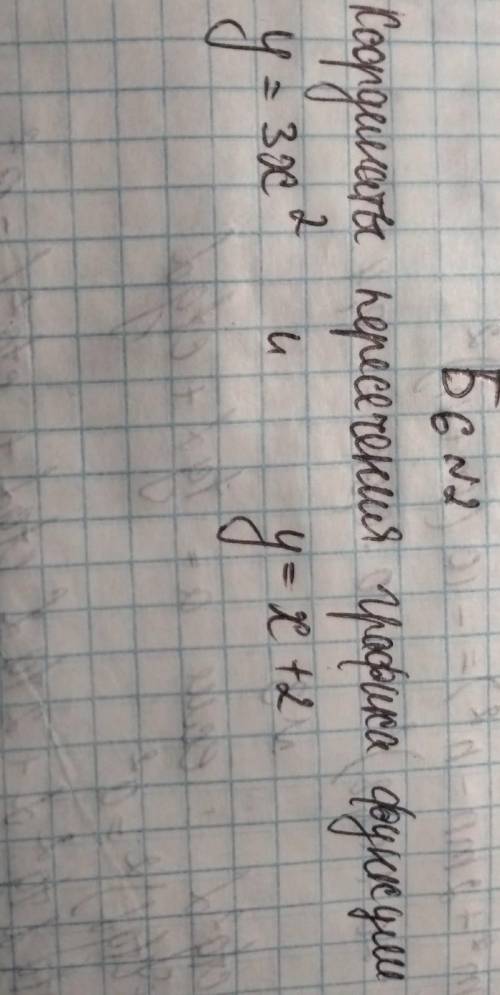 Б 6 N2
Координаты пересечения графика функции
y = 3x² и y = x + 2